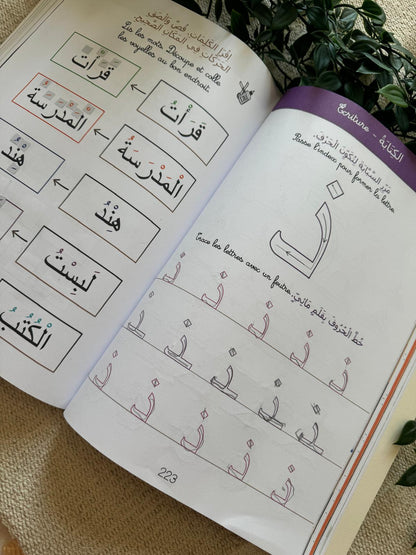 إِقْرَأْ الكَلِمَاتِ، قُصَّ وَأَلْصِقْ
الحَرَكَاتِ فِي المَكَانِ الصَّحِيحِ.
Lis les mots. Découpe et colle
les voyelles au bon endroit.
قَرَأْتُ
قَرَأْتُ
اَلْمَدْرَسَةُ
اَلْمَدْرَسَةُ
هِنْدُ
هِنْدُ
لَبِسْتُ
اَلْكُتُبُ
Écriture - الكِتَابَةُ
مَرِّرْ السَّبَّابَةَ لِيَتَكَوَّنَ الحَرْفُ.
Passe l'index pour former la lettre.
ذ
خُطَّ الحُرُوفَ بِقَلَمٍ مَائِيٍّ.
Trace les lettres avec un feutre.
ذ ذ ذ ذ ذ
ذ ذ ذ ذ ذ
ذ ذ ذ ذ ذ
223